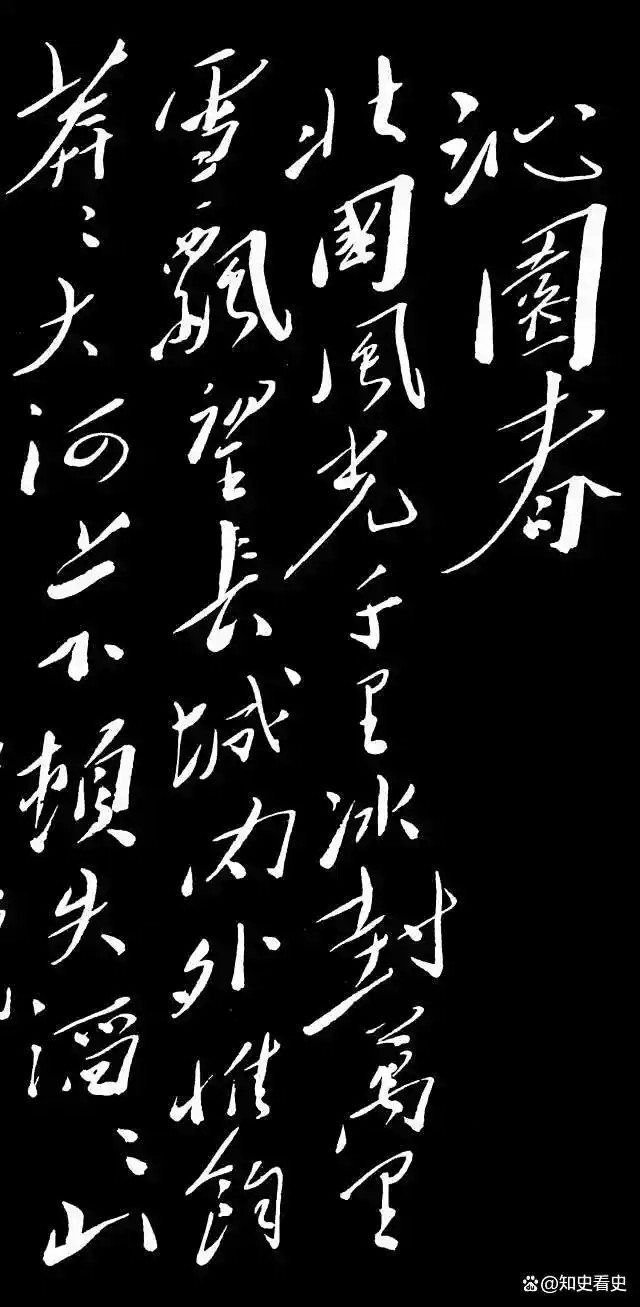 沁園春
北國風光千里冰封萬里
雪飄望長城内外惟餘
莽〻大河上下頓失滔〻山
@知史看史